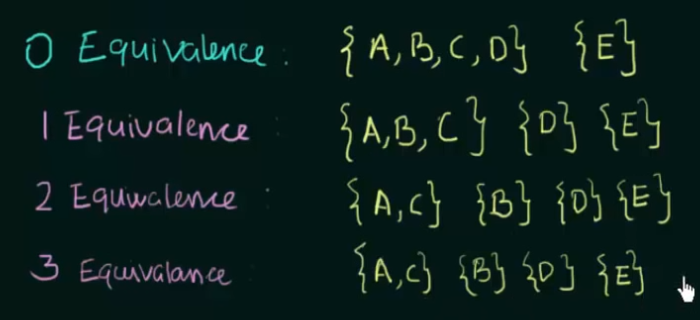 0 Equivalence : {A, B, C, D} {E}
1 Equivalence : {A, B, C} {D} {E}
2 Equivalence : {A, C} {B} {D} {E}
3 Equivalance : {A, C} {B} {D} {E}